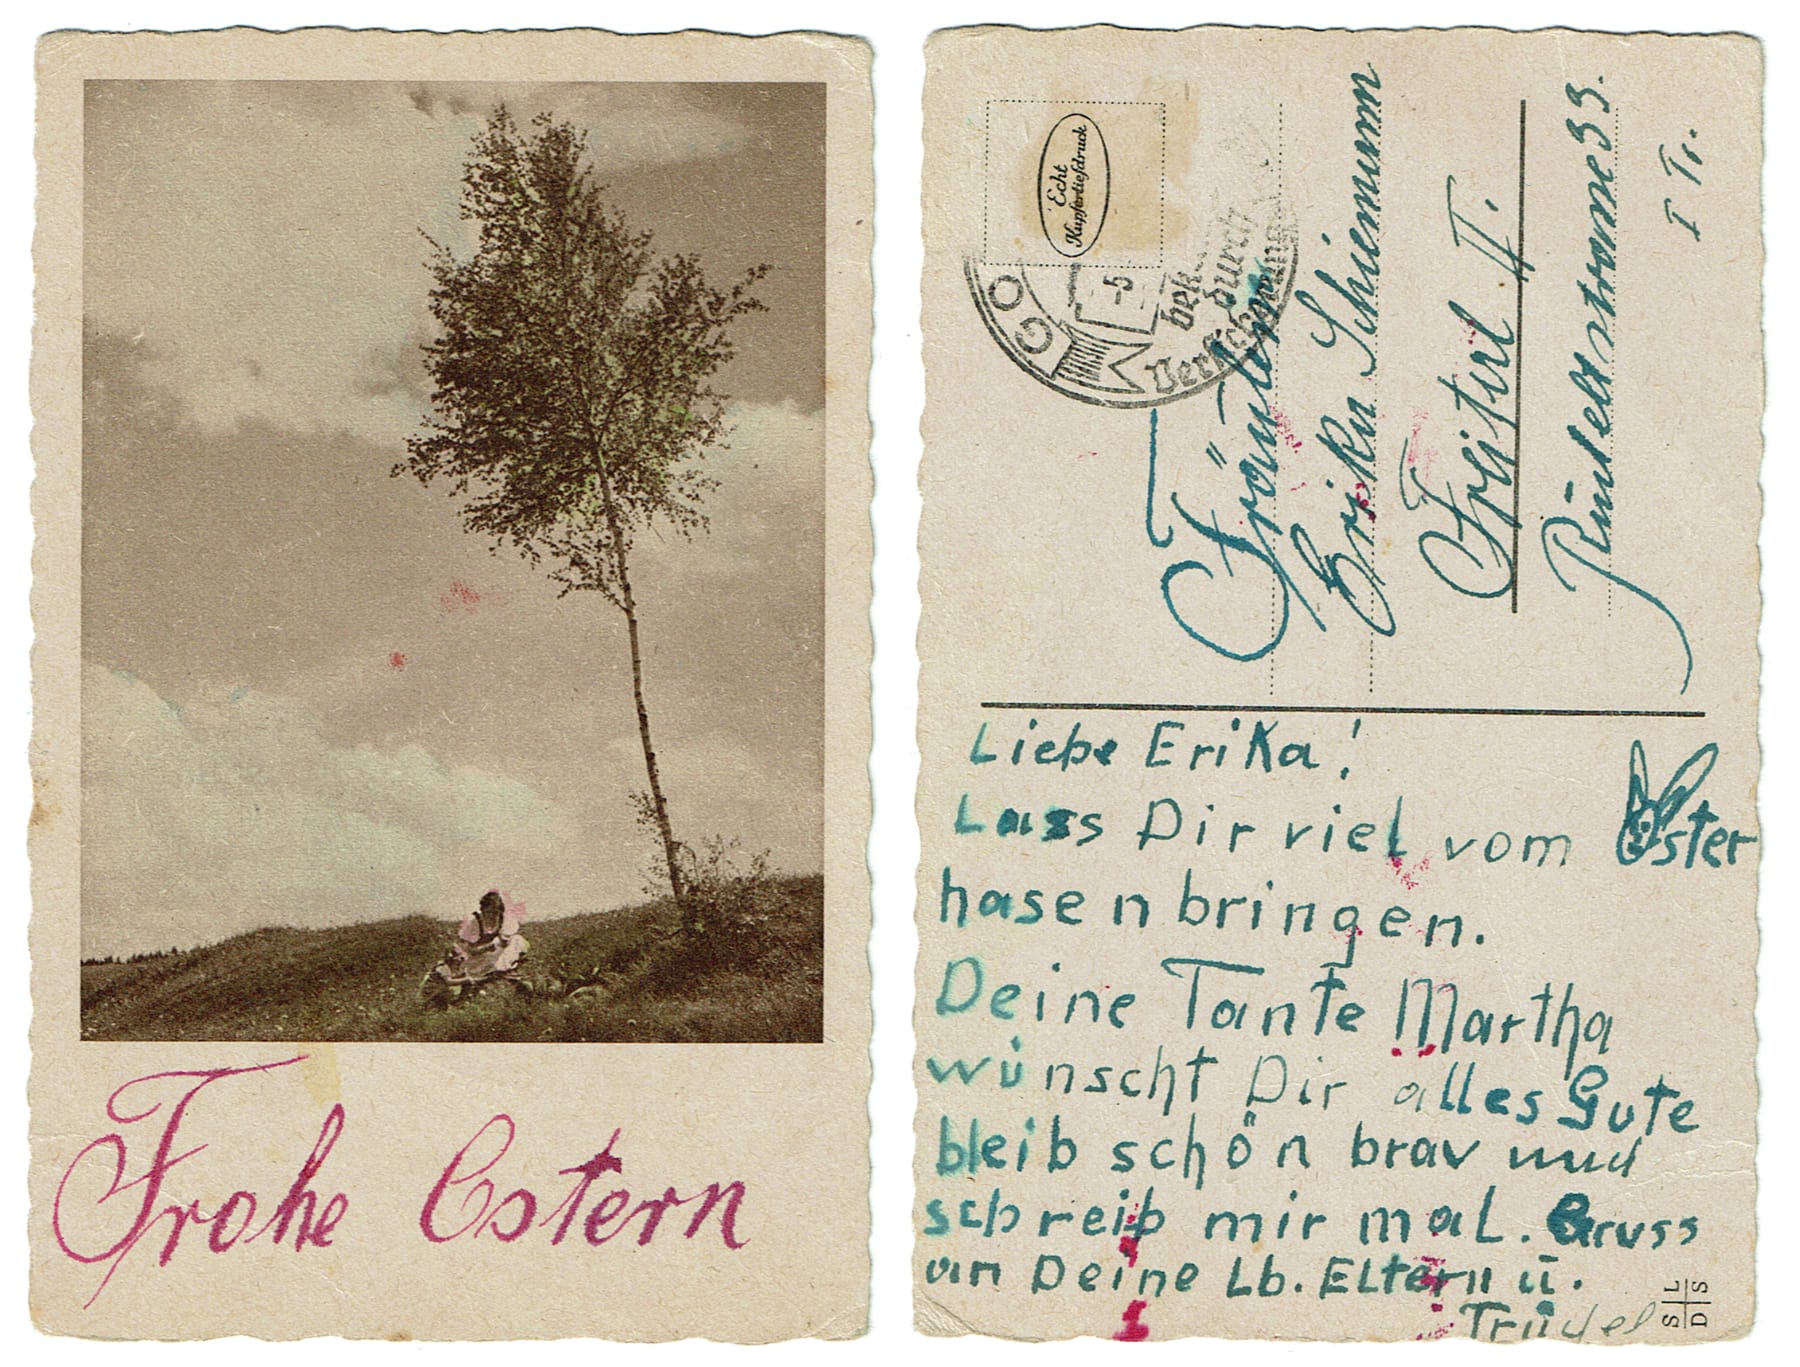 Frohe Ostern
Echt
Kupfertiefdruck
GO
-5
durch
Fräulein
Erika Schiemann
Freital II.
33.
I Tr.
Liebe Erika!
Lass Dir viel vom Oster
hasen bringen.
Deine Tante Martha
wünscht Dir alles Gute
bleib schön brav und
schreib mir mal. Gruss
an Deine Lb. Eltern u.
Trudel
S L
D S